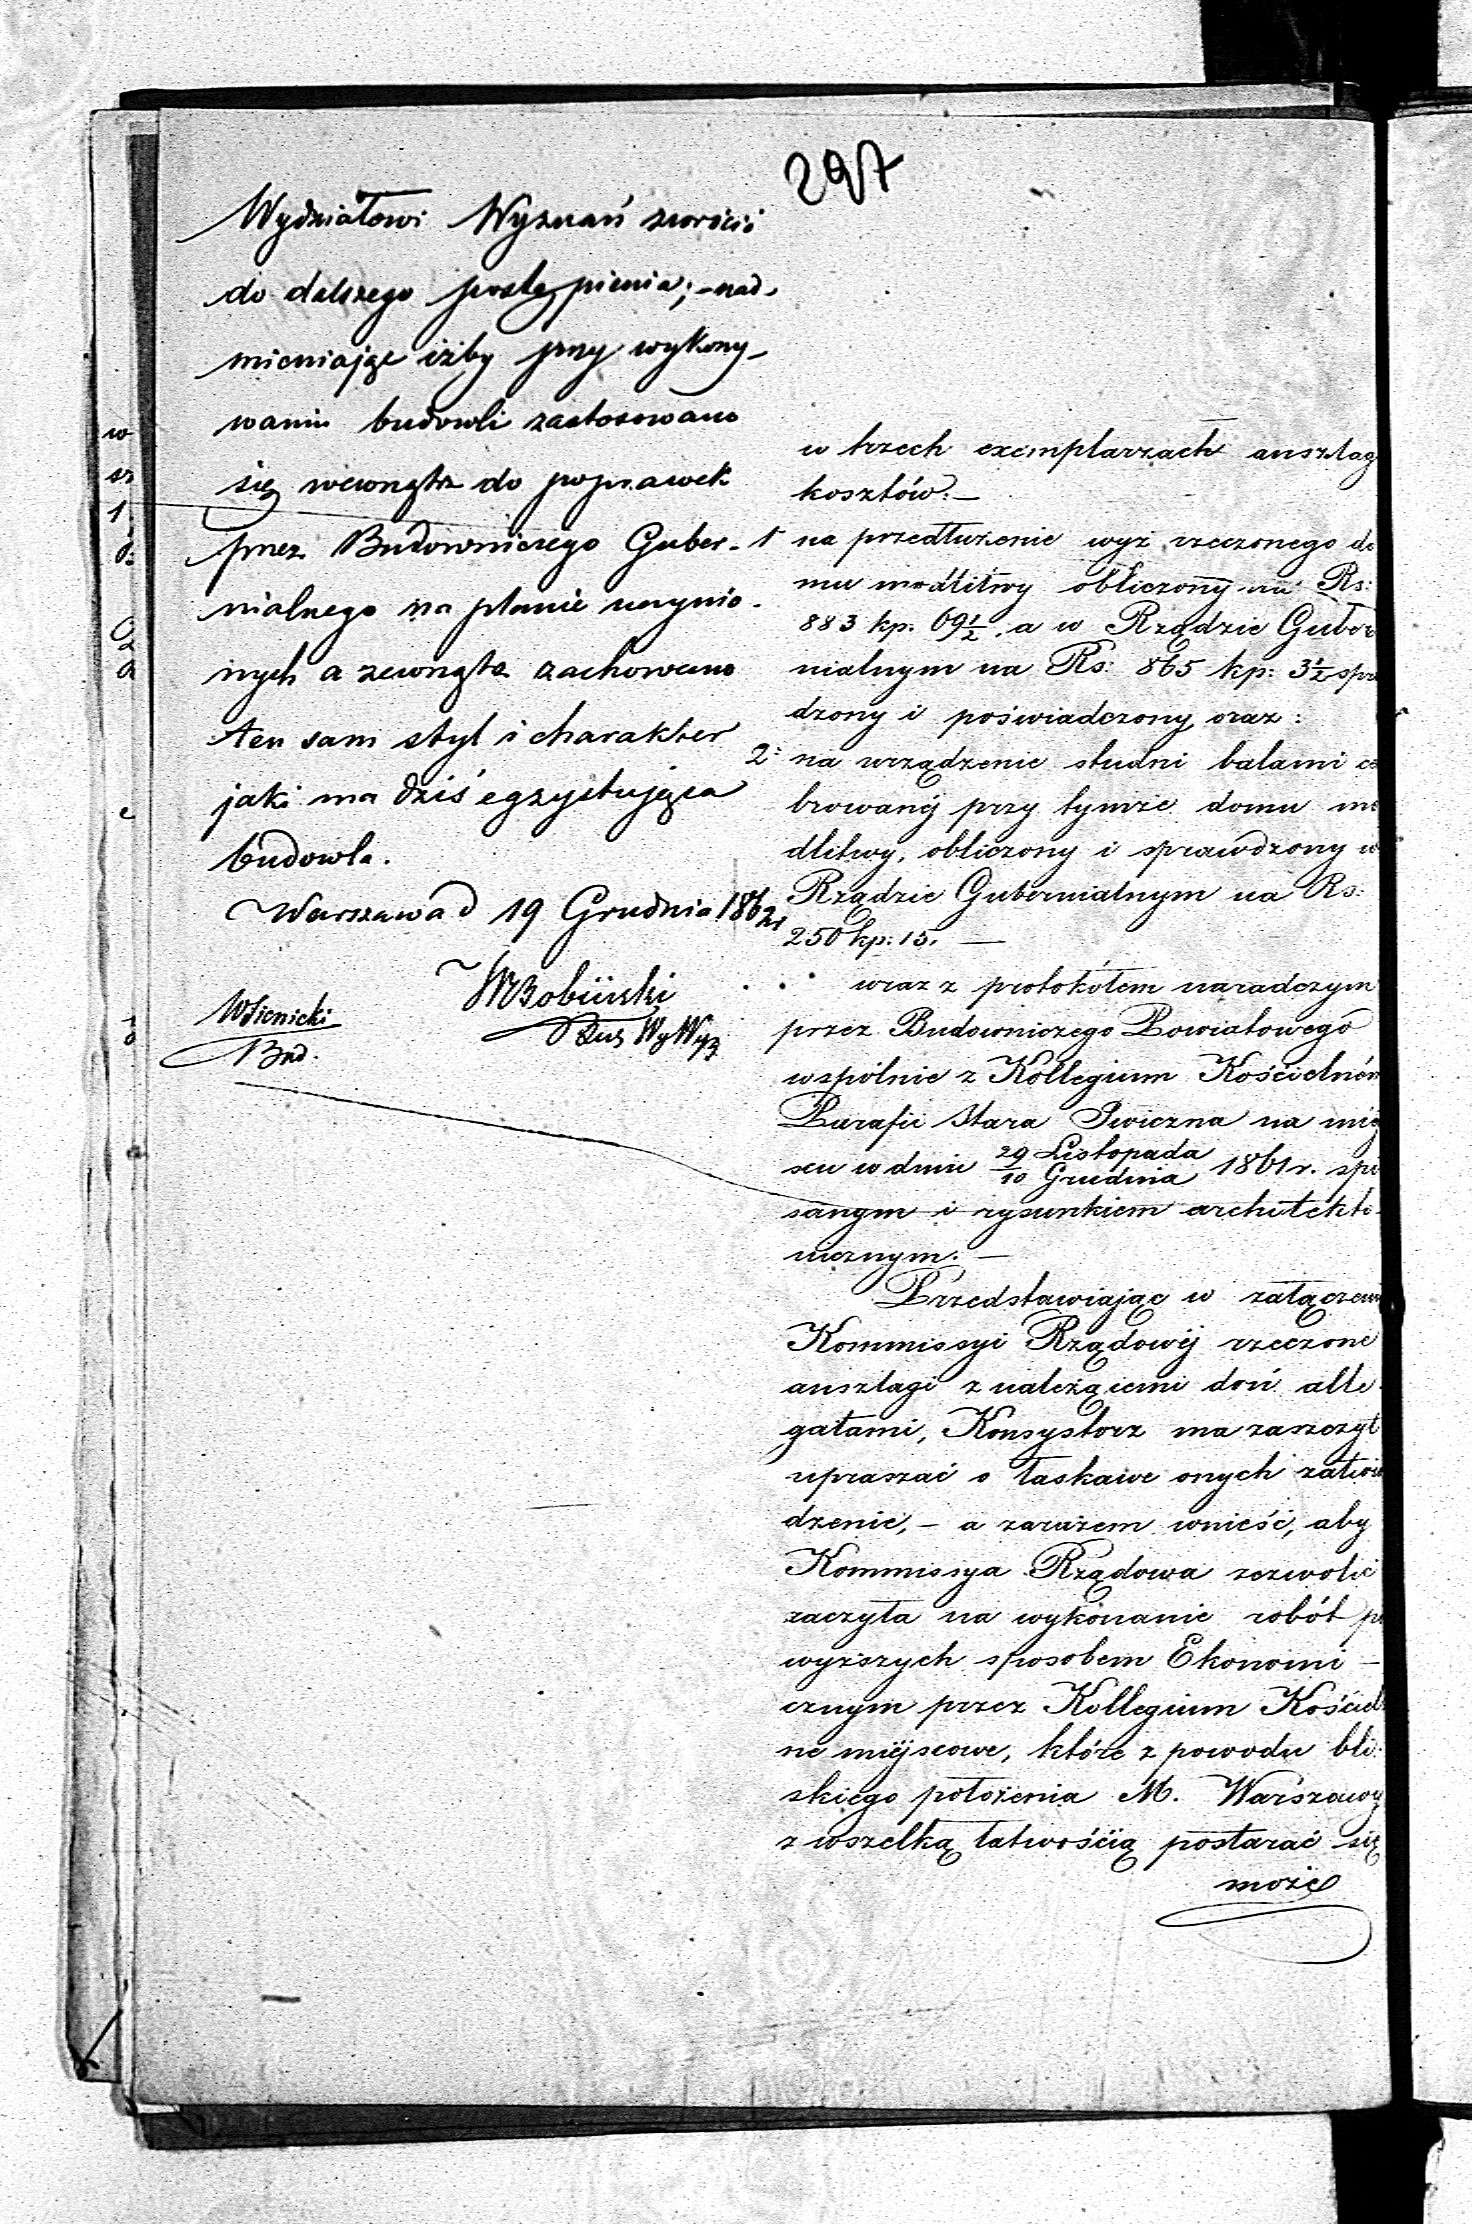 297
Wydziałowi Wyznań zwrócić
do dalszego postąpienia; - nad-
mieniając iżby przy wykony-
waniu budowli zastosowano
się wewnątrz do poprawek
przez Budowniczego Guber-
nialnego na planie uczynio-
nych a zewnątrz zachowano
ten sam styl i charakter
jaki ma dziś egzystująca
budowla.
Warszawa d 19 Grudnia 1862 r
Bud.
w trzech exemplarzach anszlag
kosztów. —
1 na przedłużenie wyż rzeczonego do
mu modlitwy obliczony na Rs:
883 kp. 69½, a w Rządzie Guber
nialnym na Rs: 865 kp: 3½ spra
dzony i poświadczony oraz:
2: na urządzenie studni balami ce
browanéj przy tymże domu mo
dlitwy, obliczony i sprawdzony w
Rządzie Gubernialnym na Rs:
250 kp: 15. —
wraz z protokółem naradczym
przez Budowniczego Powiatowego
wspólnie z Kollegium Kościelném
Parafii Stara Iwiczna na miej
scu w dniu 29 Listopada / 10 Grudnia 1861 r. spi
sanym i rysunkiem architekto-
nicznym. —
Przedstawiając w załączeniu
Kommissyi Rządowéj rzeczone
anszlagi z należącemi doń alle-
gatami, Konsystorz ma zaszczyt
upraszać o łaskawe onych zatwier
dzenie, — a zarazem wnieść, aby
Kommissya Rządowa zezwolić
raczyła na wykonanie robót po
wyższych sposobem Ekonomi —
cznym przez Kollegium Kościel
ne miejscowe, które z powodu bli-
skiego położenia M. Warszawy
z wszelką łatwością postarać się
może